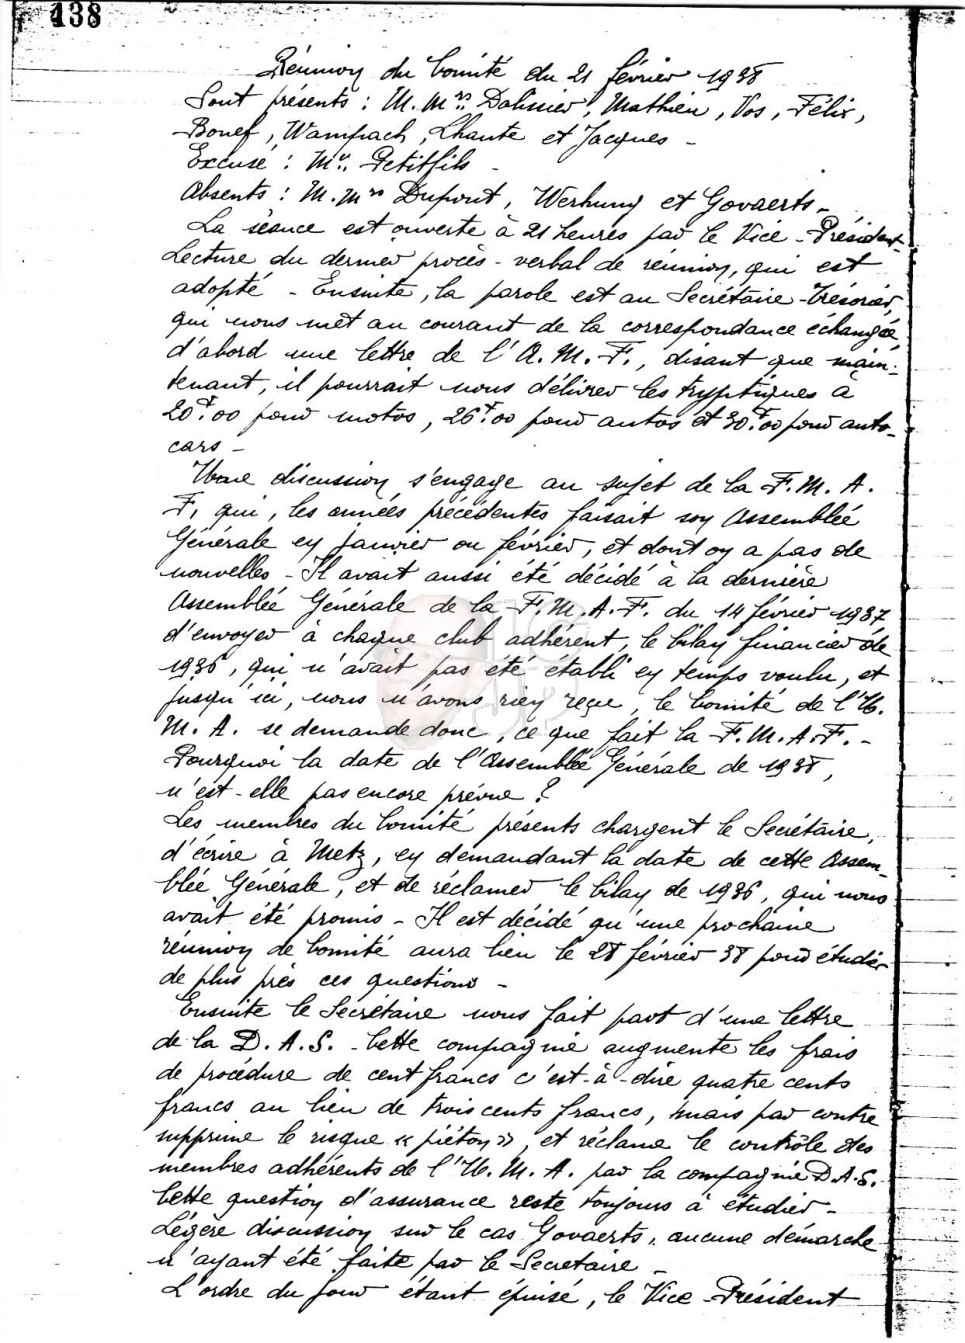 438
Réunion du Comité du 21 février 1938
Sont présents : M.Mrs Dalissier, Mathieu, Vos, Félix,
Bouef, Wampach, Lhaute et Jacques -
Excusé : Mr. Petitfils -
Absents : M.Mrs Dupont, Werhung et Govaerts -
La séance est ouverte à 21 heures par le Vice-Président -
Lecture du dernier procès-verbal de réunion, qui est
adopté - Ensuite, la parole est au Secrétaire-Trésorier,
qui nous met au courant de la correspondance échangée,
d'abord une lettre de l'A.M.F., disant que main-
tenant, il pourrait nous délivrer les tryptiques à
20F,00 pour motos, 26F,00 pour autos et 30F,00 pour auto-
cars -
Une discussion s'engage au sujet de la F.M.A.
F, qui, les années précédentes faisait son Assemblée
Générale en janvier ou février, et dont on a pas de
nouvelles - Il avait aussi été décidé à la dernière
Assemblée Générale de la F.M.A.F. du 14 février 1937
d'envoyer à chaque club adhérent, le bilan financier de
1936, qui n'avait pas été établi en temps voulu, et
jusqu'ici, nous n'avons rien reçu, le Comité de l'U.
M.A. se demande donc, ce que fait la F.M.A.F. -
Pourquoi la date de l'Assemblée Générale de 1938,
n'est-elle pas encore prévue ?
Les membres du Comité présents chargent le Secrétaire,
d'écrire à Metz, en demandant la date de cette Assem-
blée Générale, et de réclamer le bilan de 1936, qui nous
avait été promis - Il est décidé qu'une prochaine
réunion de Comité aura lieu le 28 février 38 pour étudier
de plus près ces questions -
Ensuite le Secrétaire nous fait part d'une lettre
de la D.A.S. - Cette compagnie augmente les frais
de procédure de cent francs c'est-à-dire quatre cents
francs au lieu de trois cents francs, mais par contre
supprime le risque « piéton », et réclame le contrôle des
membres adhérents de l'U.M.A. par la compagnie D.A.S.
Cette question d'assurance reste toujours à étudier -
Légère discussion sur le cas Govaerts, aucune démarche
n'ayant été faite par le Secrétaire -
L'ordre du jour étant épuisé, le Vice-Président